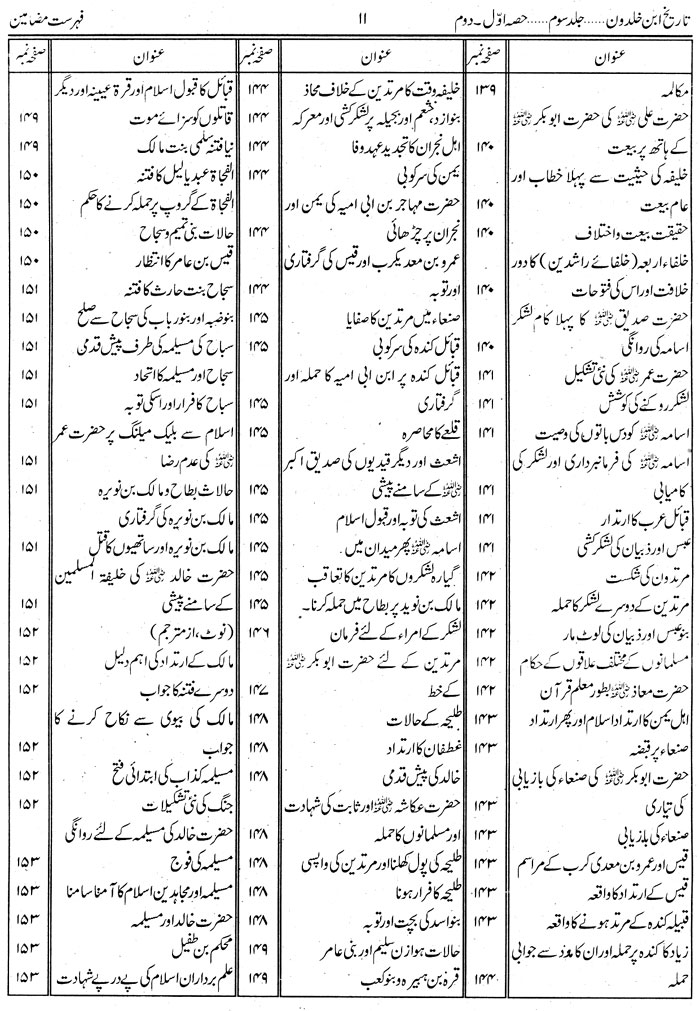 تاریخ ابن خلدون ...... جلد سوم ...... حصہ اوّل ۔ دوم ۱۱ فہرست مضامین
عنوان صفحہ نمبر
مکالمہ ۱۳۹
حضرت علی ﷛ کی حضرت ابوبکر ﷛
کے ہاتھ پر بیعت ۱۴۰
خلیفہ کی حیثیت سے پہلا خطاب اور
عام بیعت ۱۴۰
حقیقت بیعت و اختلاف ۱۴۰
خلفاء اربعہ (خلفائے راشدین) کا دور
خلافت اور اس کی فتوحات ۱۴۰
حضرت صدیق ﷛ کا پہلا کام لشکر
اسامہ کی روانگی ۱۴۰
حضرت عمر ﷛ کی نئی تشکیل ۱۴۱
لشکر روکنے کی کوشش ۱۴۱
اسامہ ﷛ کو دس باتوں کی وصیت ۱۴۱
اسامہ ﷛ کی فرمانبرداری اور لشکر کی
کامیابی ۱۴۱
قبائل عرب کا ارتداد ۱۴۱
عبس اور ذبیان کی لشکر کشی ۱۴۱
مرتدوں کی شکست ۱۴۲
مرتدین کے دوسرے لشکر کا حملہ ۱۴۲
بنو عبس اور ذبیان کی لوٹ مار ۱۴۲
مسلمانوں کے مختلف علاقوں کے حکام ۱۴۲
حضرت معاذ ﷛ بطور معلم قرآن ۱۴۲
اہل یمن کا ارتداد اسلام اور پھر ارتداد ۱۴۳
صنعاء پر قبضہ ۱۴۳
حضرت ابوبکر ﷛ کی صنعاء کی بازیابی
کی تیاری ۱۴۳
صنعاء کی بازیابی ۱۴۳
قیس اور عمرو بن معدی کرب کے مراسم ۱۴۳
قیس کے ارتداد کا واقعہ ۱۴۳
قبیلہ کندہ کے مرتد ہونے کا واقعہ ۱۴۳
زیاد کا کندہ پر حملہ اور ان کا مدد سے جوابی
حملہ ۱۴۴
عنوان صفحہ نمبر
خلیفہ وقت کا مرتدین کے خلاف محاذ ۱۴۴
بنو ازد، خثعم اور بجیلہ پر لشکر کشی اور معرکہ ۱۴۴
اہل نجران کا تجدید عہد وفا ۱۴۴
یمن کی سرکوبی ۱۴۴
حضرت مہاجر بن ابی امیہ کی یمن اور
نجران پر چڑھائی ۱۴۴
عمرو بن معدیکرب اور قیس کی گرفتاری
اور توبہ ۱۴۴
صنعاء میں مرتدین کا صفایا ۱۴۵
قبائل کندہ کی سرکوبی ۱۴۵
قبائل کندہ پر ابن ابی امیہ کا حملہ اور
گرفتاری ۱۴۵
قلعے کا محاصرہ ۱۴۵
اشعث اور دیگر قیدیوں کی صدیق اکبر
﷛ کے سامنے پیشی ۱۴۵
اشعث کی توبہ اور قبول اسلام ۱۴۵
اسامہ ﷛ پھر میدان میں ۱۴۵
گیارہ لشکروں کا مرتدین کا تعاقب ۱۴۵
مالک بن نوید پر بطاح میں حملہ کرنا۔ ۱۴۵
لشکر کے امراء کے لئے فرمان ۱۴۶
مرتدین کے لئے حضرت ابوبکر ﷛
کے خط ۱۴۷
طلیحہ کے حالات ۱۴۸
غطفان کا ارتداد ۱۴۸
خالد کی پیش قدمی ۱۴۸
حضرت عکاشہ ﷛ اور ثابت کی شہادت
اور مسلمانوں کا حملہ ۱۴۸
طلیحہ کی پول کھلنا اور مرتدین کی واپسی ۱۴۸
طلیحہ کا فرار ہونا ۱۴۸
بنو اسد کی بچت اور توبہ ۱۴۸
حالات ہوازن سلیم اور بنی عامر ۱۴۹
قرہ بن ہبیرہ و بنو کعب ۱۴۹
عنوان صفحہ نمبر
قبائل کا قبول اسلام اور قرۃ عیینہ اور دیگر
قاتلوں کو سزائے موت ۱۴۹
نیا فتنہ سلمی بنت مالک ۱۴۹
الفجاۃ عبد یالیل کا فتنہ ۱۵۰
الفجاۃ کے گروپ پر حملہ کرنے کا حکم ۱۵۰
حالات بنی تمیم و سجاح ۱۵۰
قیس بن عامر کا انتظار ۱۵۰
سجاح بنت حارث کا فتنہ ۱۵۱
بنو ضبہ اور بنو رباب کی سجاح سے صلح ۱۵۱
سباح کی مسیلمہ کی طرف پیش قدمی ۱۵۱
سجاح اور مسیلمہ کا اتحاد ۱۵۱
سباح کا فرار اور اسکی توبہ ۱۵۱
اسلام سے بلیک میلنگ پر حضرت عمر
﷛ کی عدم رضا ۱۵۱
حالات بطاح و مالک بن نویرہ ۱۵۱
مالک بن نویرہ کی گرفتاری
مالک بن نویرہ اور ساتھیوں کا قتل ۱۵۱
حضرت خالد ﷛ کی خلیفۃ المسلمین
کے سامنے پیشی ۱۵۱
(نوٹ، از مترجم) ۱۵۲
مالک کے ارتداد کی اہم دلیل ۱۵۲
دوسرے فتنہ کا جواب ۱۵۲
مالک کی بیوی سے نکاح کرنے کا
جواب ۱۵۲
مسیلمہ کذاب کی ابتدائی فتح ۱۵۲
جنگ کی نئی تشکیلات ۱۵۲
حضرت خالد کی مسیلمہ کے لئے روانگی
مسیلمہ کی فوج ۱۵۳
مسیلمہ اور مجاہدین اسلام کا آمنا سامنا ۱۵۳
حضرت خالد اور مسیلمہ ۱۵۳
محکم بن طفیل ۱۵۳
علم برداران اسلام کی پے در پے شہادت ۱۵۳